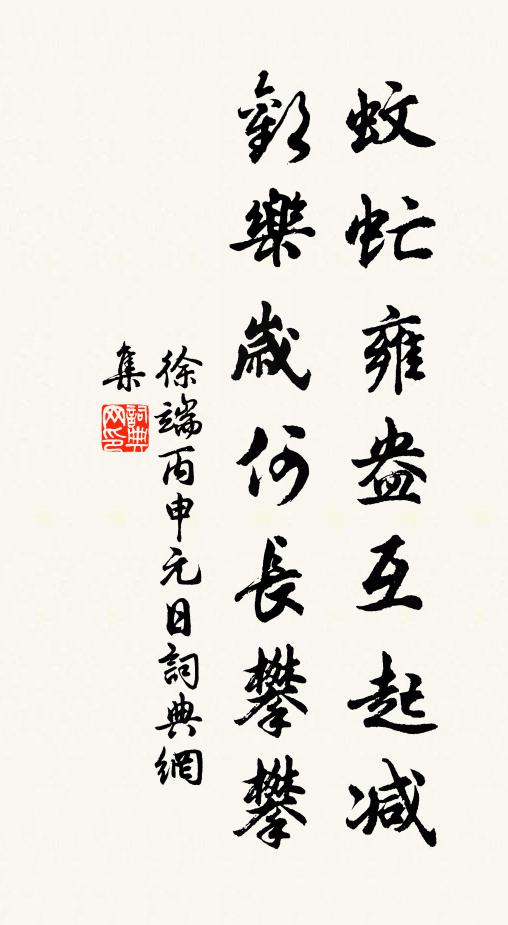 蚊虻雍盎互起减
歡樂歲何長攀攀
徐端丙申元日詞典網
集
詞典网印